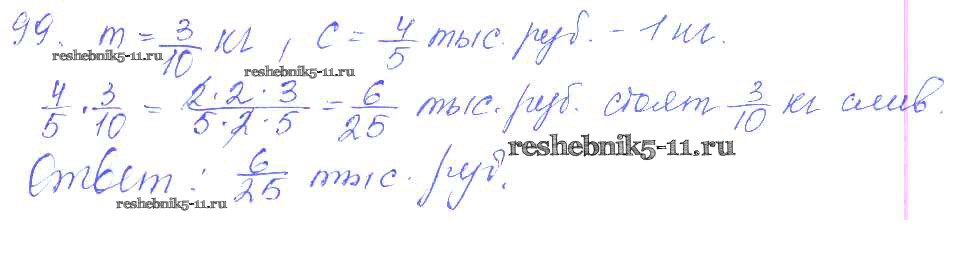 99. m = 3/10 кг, С = 4/5 тыс. руб. - 1 кг.
reshebnik5-11.ru
reshebnik5-11.ru
4/5 · 3/10 = 2·2·3/5·2·5 = 6/25 тыс. руб. стоят 3/10 кг слив.
reshebnik5-11.ru
Ответ: 6/25 тыс. руб.
reshebnik5-11.ru